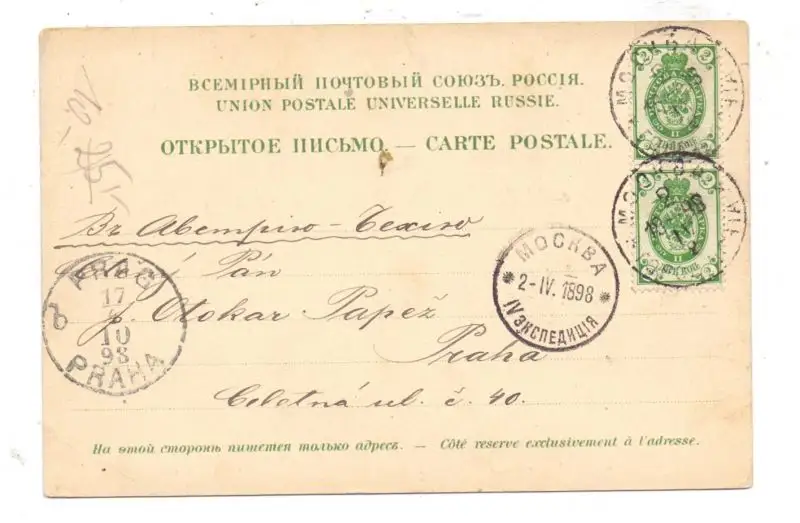 ВСЕМІРНЫЙ ПОЧТОВЫЙ СОЮЗЪ. РОССІЯ.
UNION POSTALE UNIVERSELLE RUSSIE.
ОТКРЫТОЕ ПИСЬМО. — CARTE POSTALE.
Въ Австрію - Чехію
Pán
p. Otokar Papež
Praha
Celetná ul. č. 40.
МОСКВА
2-IV.1898
IV ЭКСПЕДИЦІЯ
PRAG
17
10
98
PRAHA
На этой сторонѣ пишется только адресъ. — Côté reserve exclusivement à l'adresse.